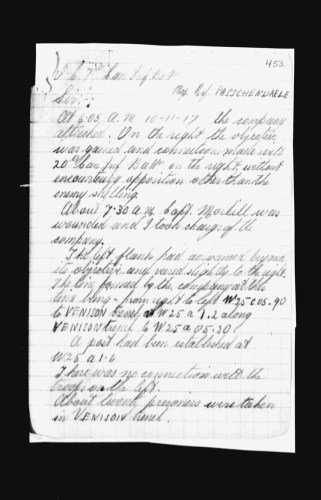 453
O.C. 7th Can. Inf. Batt.
Map Ref. PASSCHENDAELE
Sir:-
At 6.05 A.M. 10-11-17 the company
attacked. On the right the objective
was gained and connection made with
20th Can. Inf. Batt. on the right, without
encountering opposition other than the
enemy shelling.
About 7.30 A.M. Capt. was
wounded and I took charge of the
company.
The left flank had advanced beyond
its objective and veered slightly to the right.
The line formed by the company at this
time being - from right to left W25 c 05.90
to VENISON trench at W25 a 1.2 along
VENISON trench to W25 a 05.30
A post had been established at
W25 a 1.6
There was no connection with the
troops on the left.
About twenty prisoners were taken
in VENISON trench.